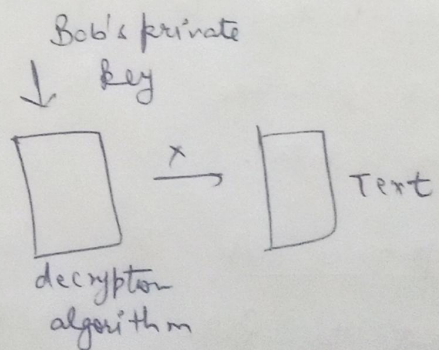 Bob's private
key
x
Text
decryption
algorithm